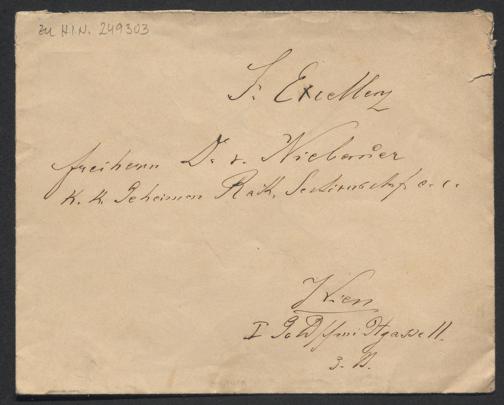 zu H.I.N. 249303
Sr Excellenz
Freiherrn Dr. v. Niebauer
K. K. Geheimen Rath, Sectionschef e. c.
Wien
I Goldschmidtgasse 11.
3. St.